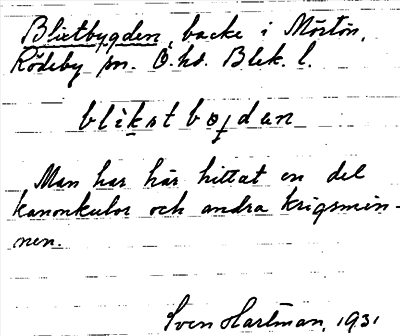 Blixtbygden, backe i Mörtön,
Rödeby sn. Ö. hd. Blek. l.
Man har här hittat en del
kanonkulor och andra krigsmin-
nen.
Sven Hartman, 1931